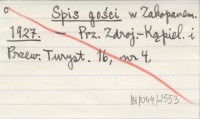 Spis gości w Zakopanem.
1927. — Prz. Zdroj.-Kąpiel. i
Przew. Turyst. 16, nr 4.